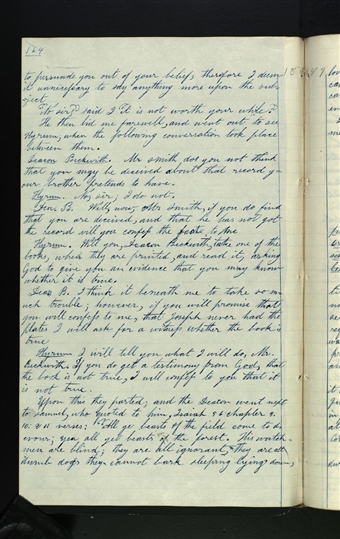 124
to persuade you out of your belief, therefore I deem
it unnecessary to say anything more upon the sub-
ject.
"No sir," said I "It is not worth your while."
He then bid me farewell, and went out to see
Hyrum, when the following conversation took place
between them.
Deacon Beckwith. Mr Smith do you not think
that you may be deceived about that record y-
our brother pretends to have.
Hyrum. No, sir, I do not.
Deac. B. Well, now, Mr Smith, if you do find
that you are deceived, and that he has not got
the record will you confess the to Me
Hyrum. Will you, Deacon Beckwith, take one of the
books, when they are printed, and read it, asking
God to give you an evidence that you may know
whether it is true.
Deac B. I think it beneath me to take so m-
uch trouble; however, if you will promise that
you will confess to me, that Joseph never had the
plates I will ask for a witness whether the book is
true
Hyrum I will tell you what I will do, Mr.
Beckwith. If you do get a testimony from God, that
the book is not true, I will confess to you that it
is not true.
Upon this they parted; and the Deacon went next
to Samuel, who quoted to him, Isaiah 56 chapter 9.
10. & 11 verses; "All ye beasts of the field come to d-
evour; yea all ye beasts of the forest. His watch-
men are blind; they are all ignorant, they are all
dumb dogs they cannot bark sleeping lying down,